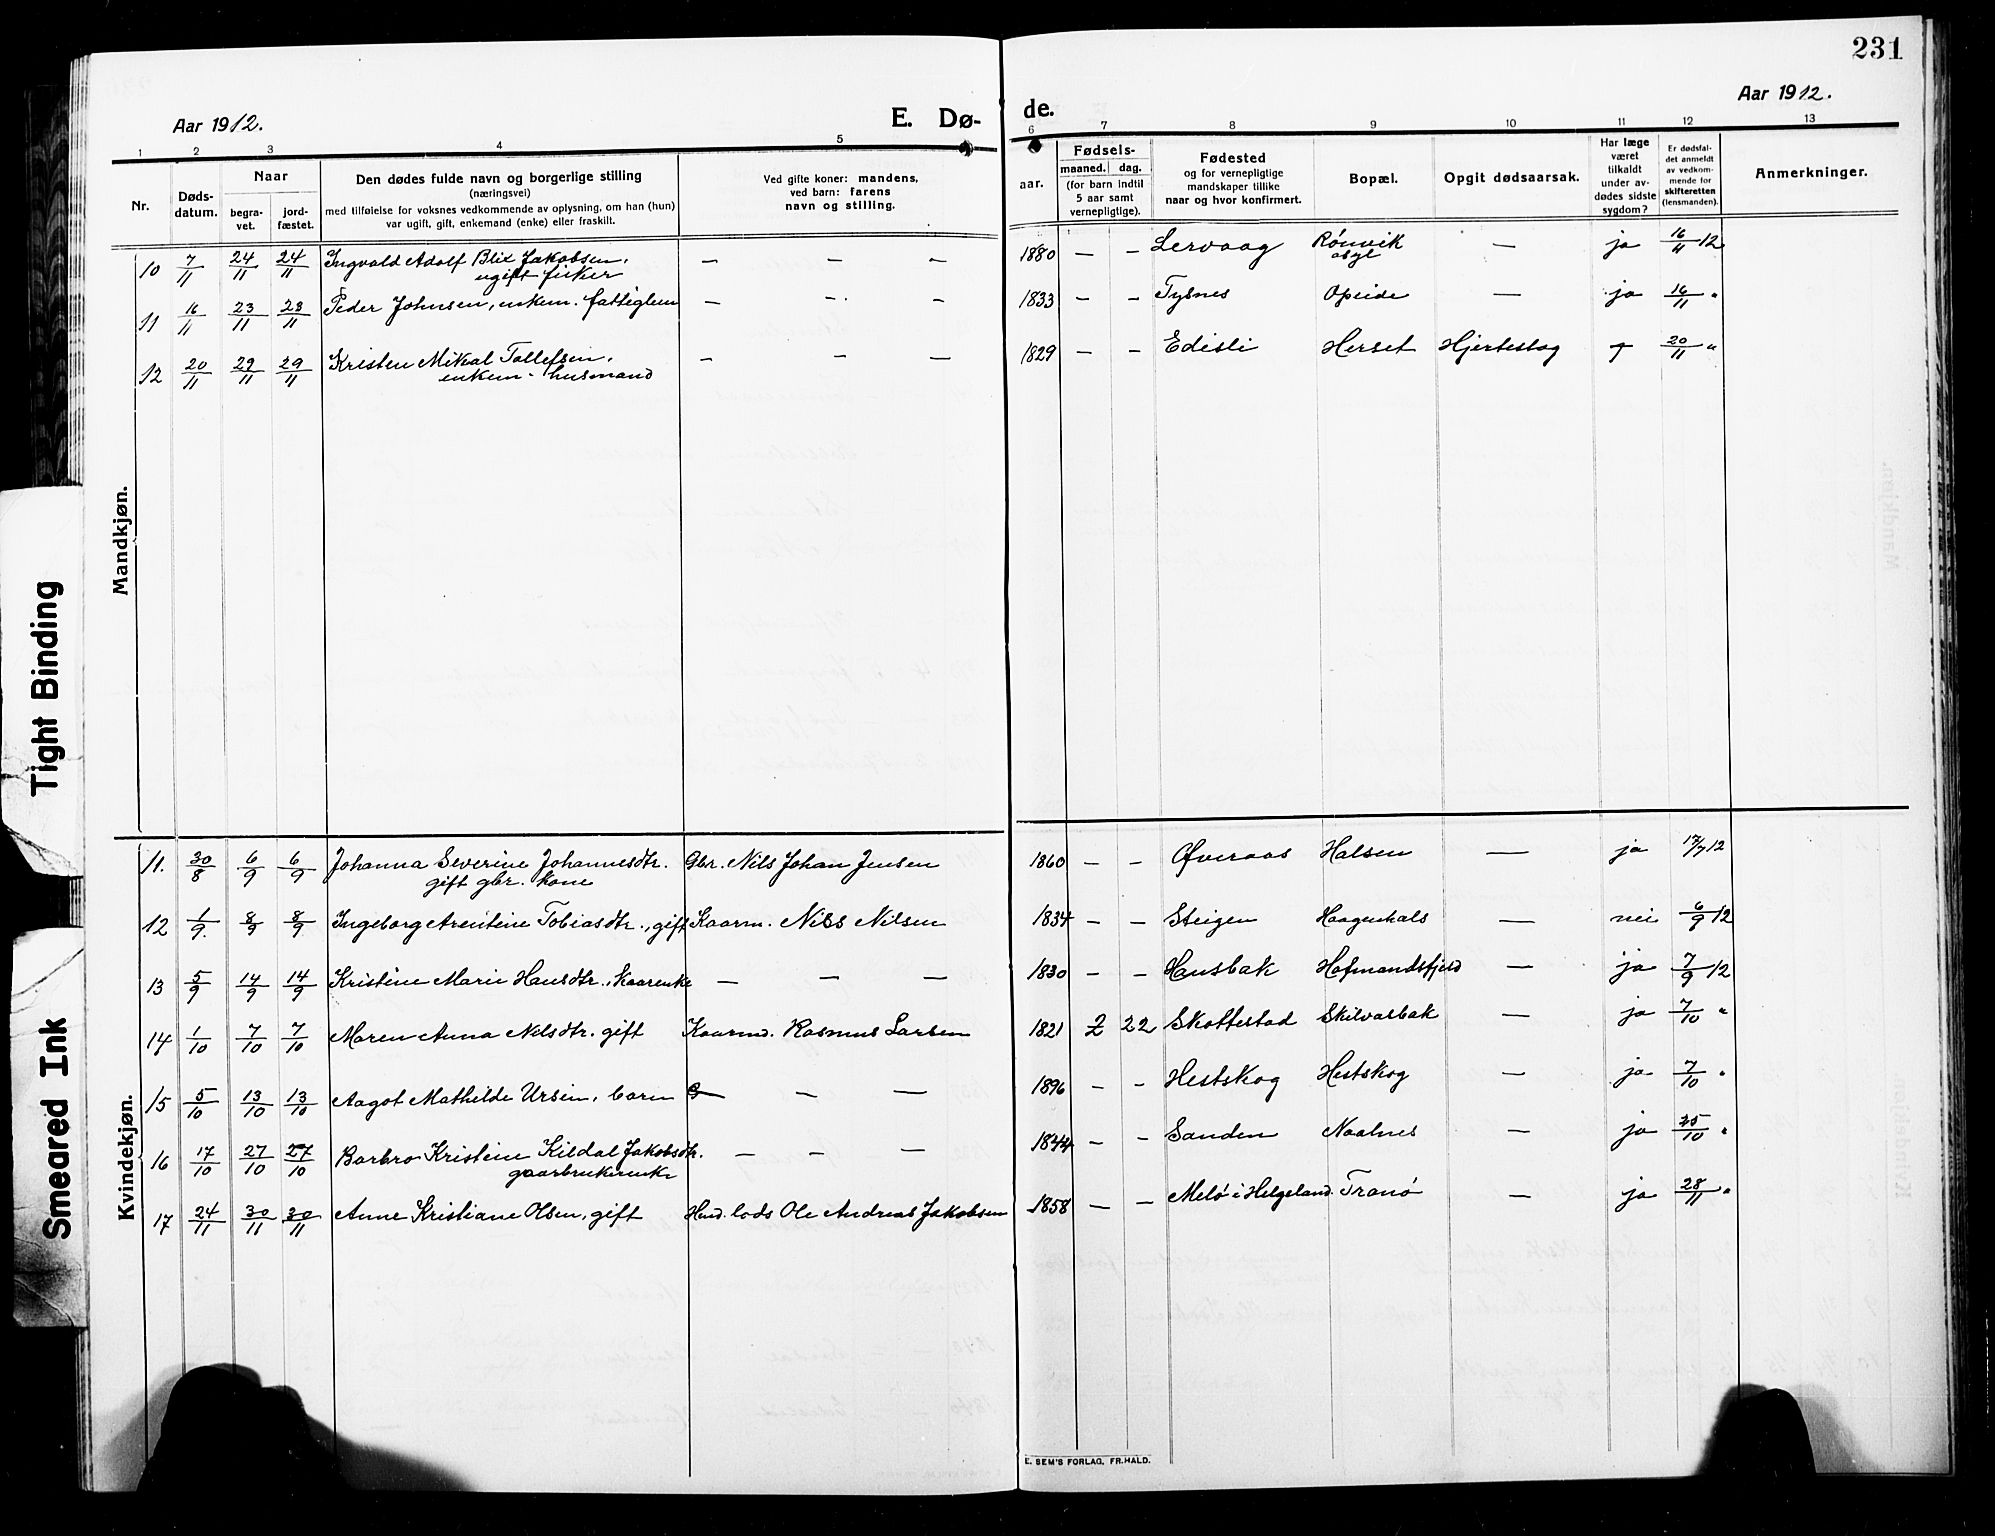 231
Aar 1912.
E. Dø-
de.
Aar 1912.
1 2 3 4 5 6 7 8 9 10 11 12 13
Nr.
Døds-
datum.
Naar
begra-
vet.
jord-
fæstet.
Den dødes fulde navn og borgerlige stilling
(næringsvei)
med tilføielse for voksnes vedkommende av oplysning, om han (hun)
var ugift, gift, enkemand (enke) eller fraskilt.
Ved gifte koner: mandens,
ved barn: farens
navn og stilling.
Fødsels-
aar.
maaned. dag.
(for barn indtil
5 aar samt
vernepligtige).
Fødested
og for vernepligtige
mandskaper tillike
naar og hvor konfirmert.
Bopæl.
Opgit dødsaarsak.
Har læge
været
tilkaldt
under av-
dødes sidste
sygdom?
Er dødsfal-
det anmeldt
av vedkom-
mende for
skifteretten
(lensmanden).
Anmerkninger.
Mandkjøn.
10 7/11 24/11 24/11 Ingvald Adolf Blix Jakobsen, — — — 1880 — — Lervaag Rønvik — ja 16/11 12
ugift fisker asyl
11 16/11 23/11 23/11 Peder Johnsen, enkem. fattiglem — — — 1833 — — Tysnes Opeide — ja 16/11 "
12 20/11 29/11 29/11 Kristen Mikal Tollefsen, — — — 1829 — — Edisli Herset Hjerteslag 20/11 "
enkem. husmand
Kvindekjøn.
11. 30/8 6/9 6/9 Johanna Severine Johannesdtr. Gbr. Nils Johan Jensen 1860 — — Øveraas Halsen — ja 17/7 12
gift gbr. kone
12 1/9. 8/9 8/9 Ingeborg Arentine Tobiasdtr., gift Kaarm. Nils Nilsen 1834 — — Steigen Haagenhals — nei 6/9 12
13 5/9 14/9 14/9 Kristine Marie Hansdtr., kaarenke — — — 1830 — — Hansbak Hofmandsfjeld — ja 7/9 12
14 1/10 7/10 7/10 Maren Anna Nilsdtr. gift Kaarmd. Rasmus Larsen 1821 2 22 Skottestad Skilvasbak — ja 7/10 "
15 5/10 13/10 13/10 Aagot Mathilde Ursin, barn — — — 1896 — — Hestskog Hestskog — ja 7/10 "
16 17/10 27/10 27/10 Barbro Kristine Kildal Jakobsdtr. — — — 1844 — — Sanden Naalnes — ja 25/10 "
gaarbrukerenke
17 24/11 30/11 30/11 Anne Kristiane Olsen, gift Hmd. lods Ole Andreas Jakobsen 1858 — — Melø i Helgeland. Tranø — ja 28/11 "
E. SEM'S FORLAG, FR.HALD.
Tight Binding
Smeared Ink